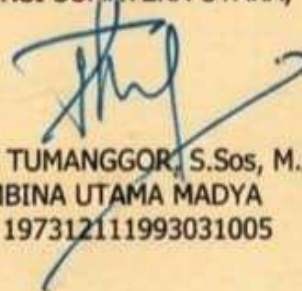 TUMANGGOR, S.Sos, M.
BINA UTAMA MADYA
197312111993031005